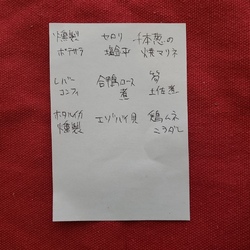 燻製 セロリ 千本葱の
ポテサラ 塩金平 焼マリネ
レバー 合鴨ロース 筍
コンフィ 煮 土佐煮
ホタルイカ エゾバイ貝 鶏ムネ
燻製